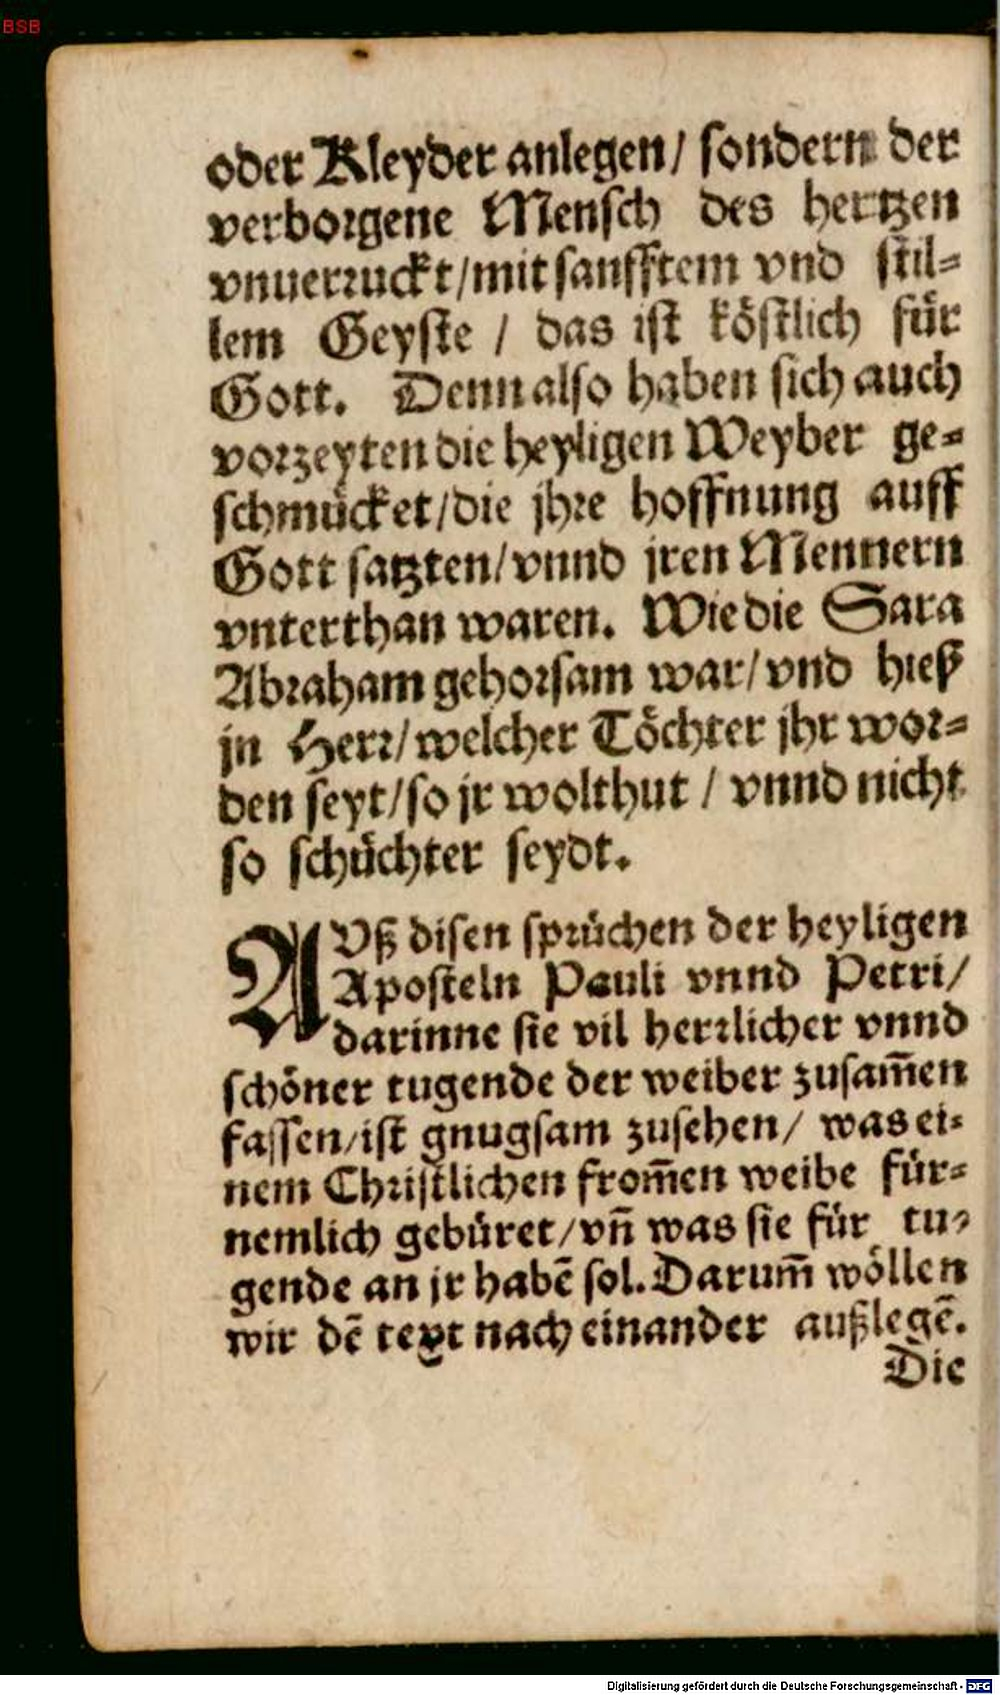 BSB
oder Kleyder anlegen/ sondern der
verborgene Mensch des hertzen
vnuerruckt/mit sanfftem vnd stil=
lem Geyste / das ist köstlich für
Gott. Denn also haben sich auch
vorzeyten die heyligen Weyber ge=
schmücket/die jhre hoffnung auff
Gott satzten/vnnd jren Mennern
vnterthan waren. Wie die Sara
Abraham gehorsam war/vnd hieß
jn Herr/welcher Töchter jhr wor=
den seyt/so jr wolthut / vnnd nicht
so schüchter seydt.
AVß disen sprüchen der heyligen
Aposteln Pauli vnnd Petri/
darinne sie vil herrlicher vnnd
schöner tugende der weiber zusam̄en
fassen/ist gnugsam zusehen/ was ei=
nem Christlichen from̄en weibe für=
nemlich gebüret/vn̄ was sie für tu=
gende an jr habē sol. Darum̄ wöllen
wir dē text nach einander außlegē.
Die
Digitalisierung gefördert durch die Deutsche Forschungsgemeinschaft - DFG